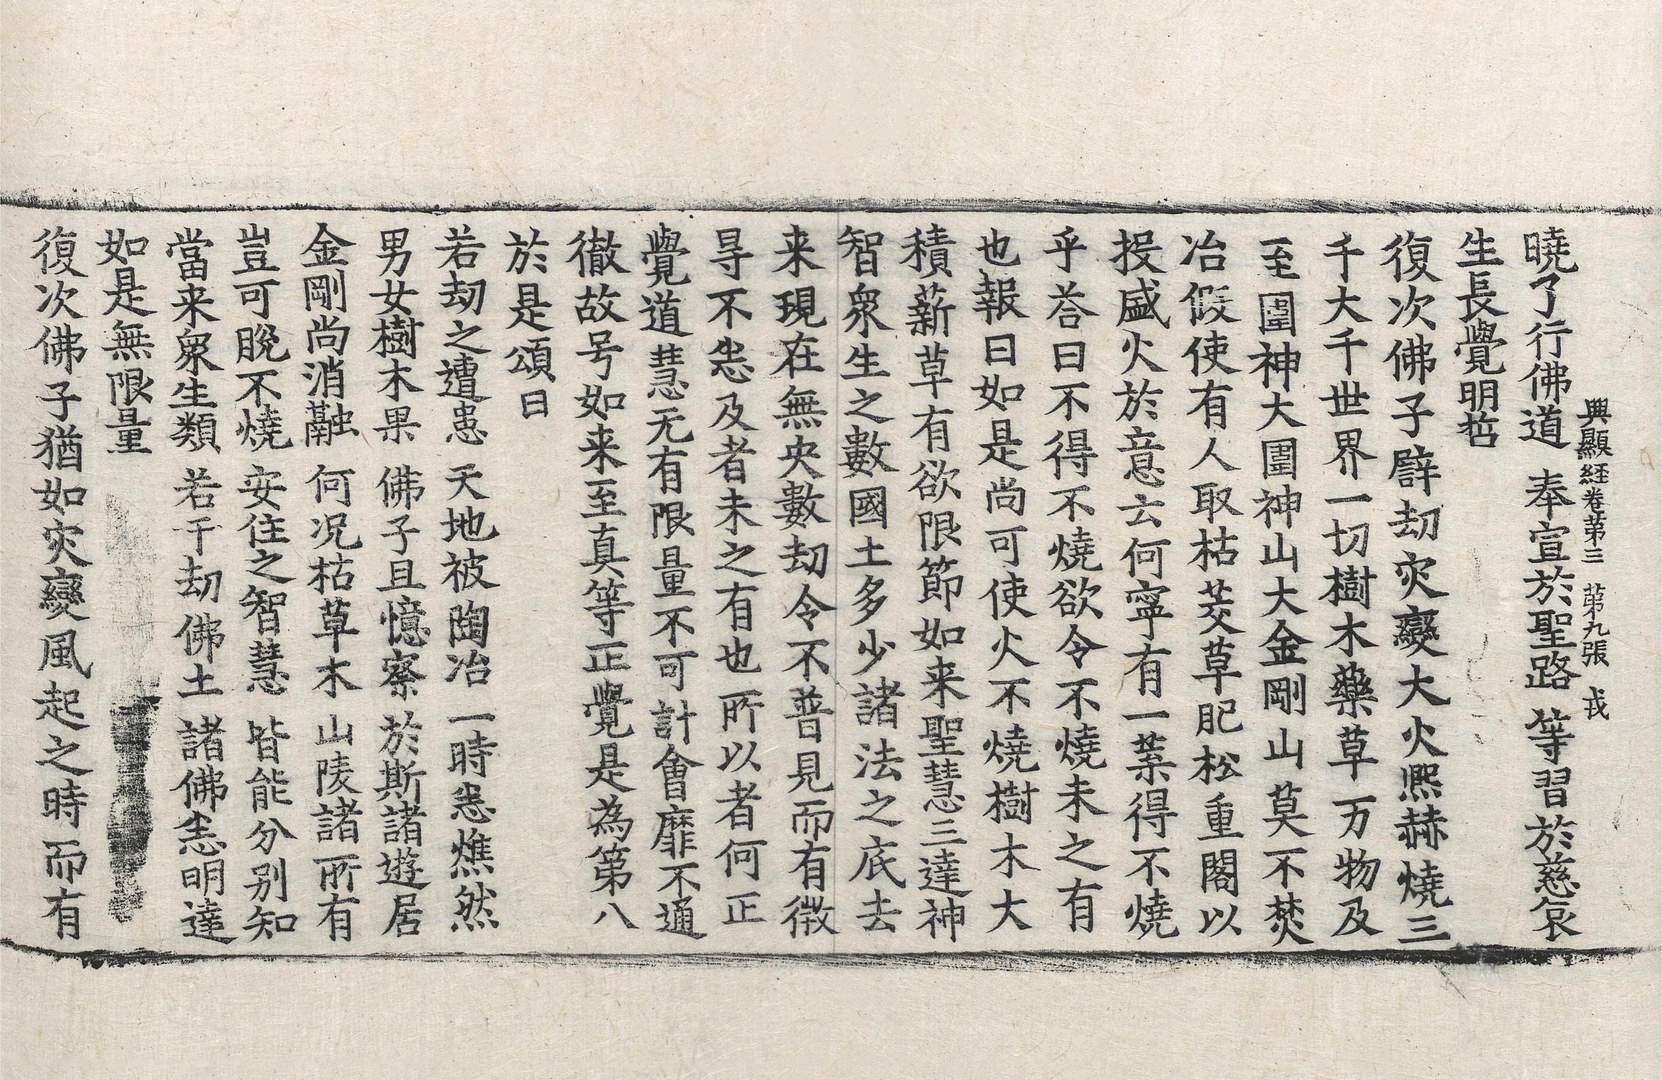 興顯経卷第三 苐九張 戎
曉了行佛道 奉宣於聖路 等習於慈哀
生長覺明哲
復次佛子辟劫灾變大火熈赫燒三
千大千世界一切樹木藥草万物及
至圍神大圍神山大金剛山莫不焚
冶假使有人取枯茭草肥松重閣以
投盛火於意云何寧有一葉得不燒
乎荅曰不得不燒欲令不燒未之有
也報曰如是尚可使火不燒樹木大
積薪草有欲限節如来聖慧三達神
智衆生之數國土多少諸法之底去
来現在無央數劫令不普見而有徵
㝵不悉及者未之有也所以者何正
覺道慧无有限量不可計會靡不通
徹故号如来至真等正覺是為第八
於是頌曰
若劫之遭患 天地被陶冶 一時悉燋然
男女樹木果 佛子且憶察 於斯諸遊居
金剛尚消融 何况枯草木 山陵諸所有
豈可脫不燒 安住之智慧 皆能分别知
當来衆生類 若干劫佛土 諸佛悉明達
如是無限量
復次佛子猶如灾變風起之時而有